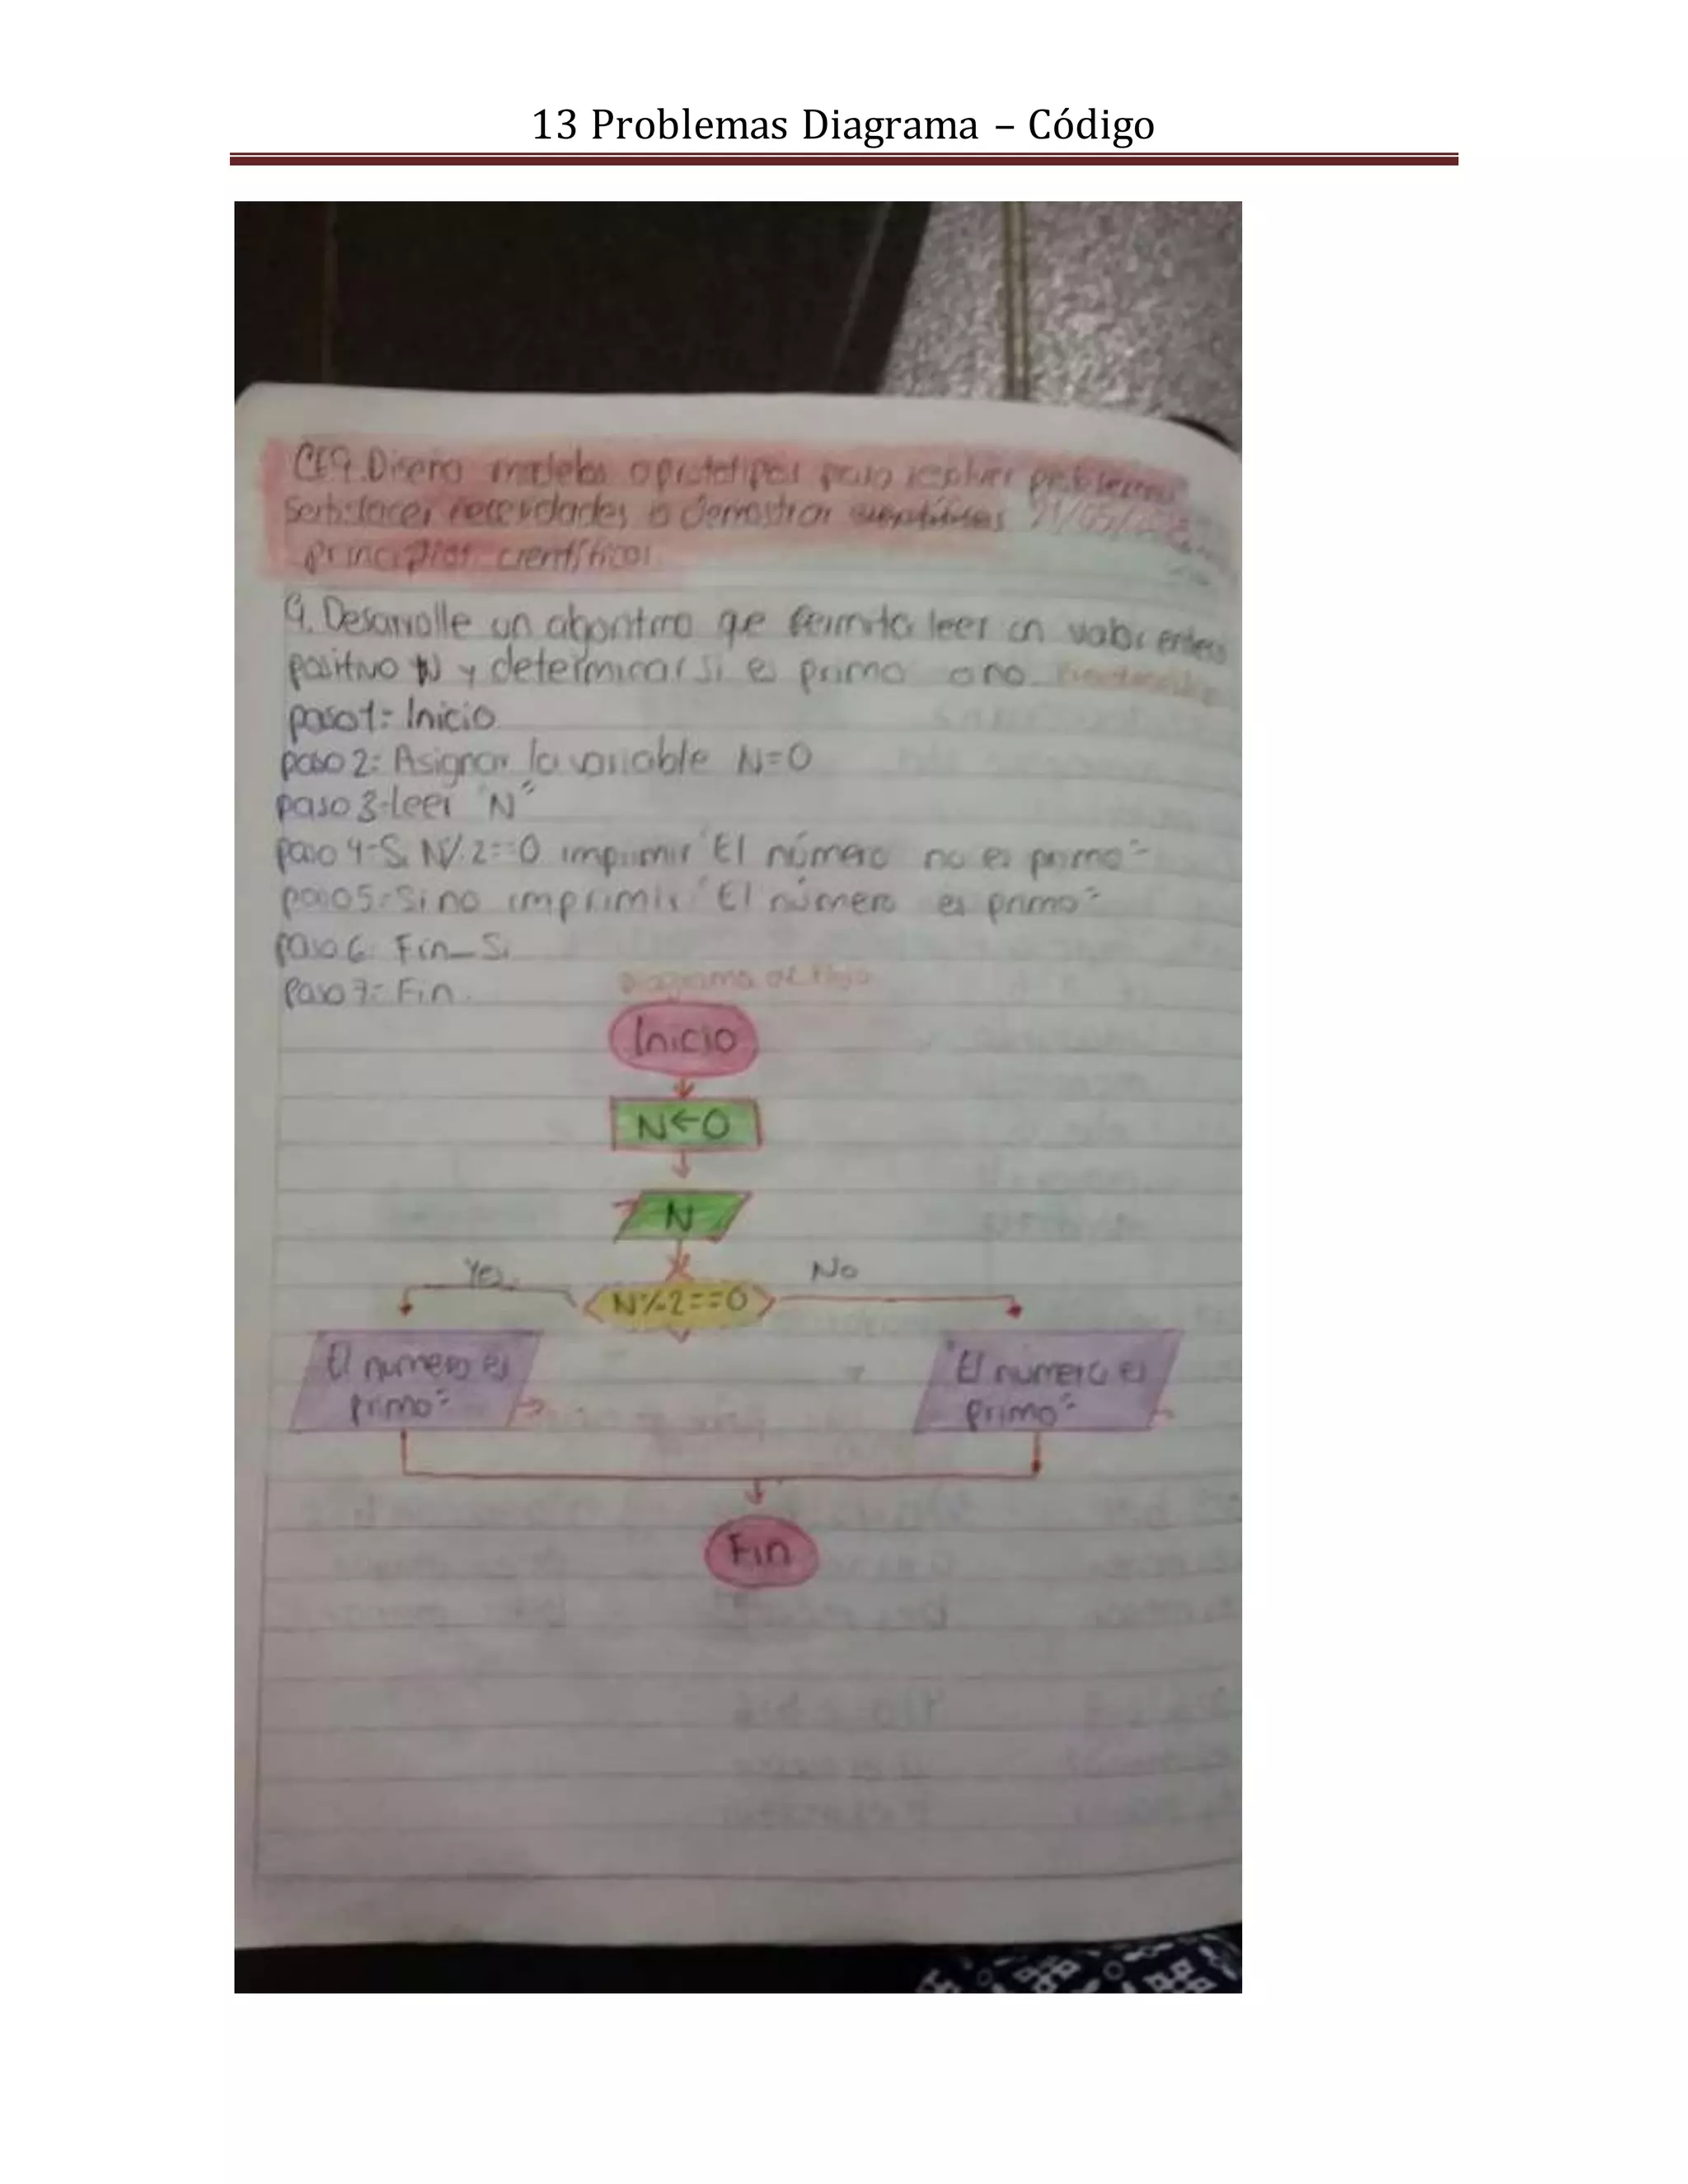 13 Problemas Diagrama – Código
CE9. Diseño modelos o prototipos para resolver problemas
satisfacer necesidades o demostrar
principios científicos
9. Desarrolle un algoritmo que permita leer un valor entero
positivo N y determinar si es primo o no.
paso1= Inicio
paso 2= Asignar la variable N=0
paso 3-leer "N"
paso 4-Si N%2==0 imprimir "El número no es primo"
paso5=Si no imprimir "El número es primo"
paso 6: Fin_Si
Paso 7= Fin.
Diagrama de flujo
Inicio
N←0
N
Yes. No
N%2==0
El numero es "El numero es
primo" primo"
Fin